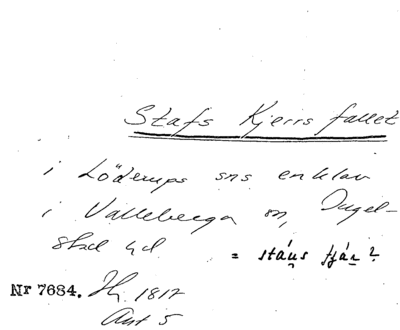 Stafs Kjerrs fallet
i Löderups sns enklav
i Valleberga sn, Ingel-
stad hd
= stáus tjár?
Nr 7684. Hy 1812
Akt 5